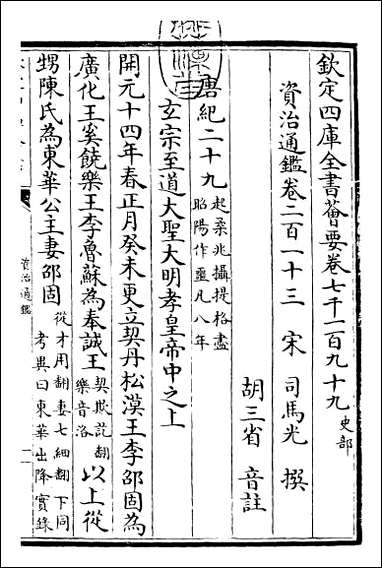 欽定四庫全書薈要卷七千一百九十九 史部
資治通鑑卷二百一十三 宋 司馬光 撰
胡三省 音註
唐紀二十九 起柔兆攝提格盡
昭陽作噩凡八年
玄宗至道大聖大明孝皇帝中之上
開元十四年春正月癸未更立契丹松漠王李邵固為
廣化王奚饒樂王李魯蘇為奉誠王 契欺訖翻
樂音洛 以上從
甥陳氏為東華公主妻邵固 從才用翻妻七細翻下同
考異曰東華出降實錄
資治通鑑